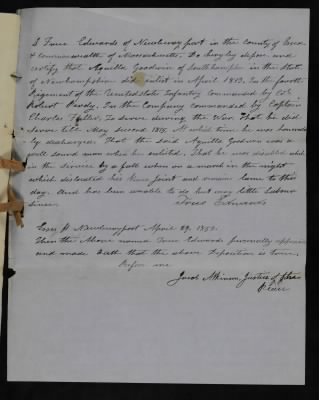 I True Edwards of Newburyport in the County of Essex
& Commonwealth of Massachusetts, Do Swory depose and
certify that Aquilla Goodwin of Southampton in the State
of Newhampshire did enlist in April 1813. In the fourth
Regiment of the United State Infantry commanded by Col
Robert Purdy. In the Company commanded by Captain
Charles Fuller. To Serve during the War. That he did
Serve till May Second 1815. At which time he was honorab
ly discharged. That the said Aquilla Goodwin was a
well sound man when he enlisted. That he was disabled while
in the Service by a fall when on a march in the night
which dislocated his Knee Joint and remain lame to this
day. And has been unable to do but very little Labour
since.
True Edwards
Essex ss Newburyport April 29. 1852.
Then the Above named True Edwards personally appeared
and made oath that the above Deposition is true,
Before me
Jacob Atkinson, Justice of the
Peace